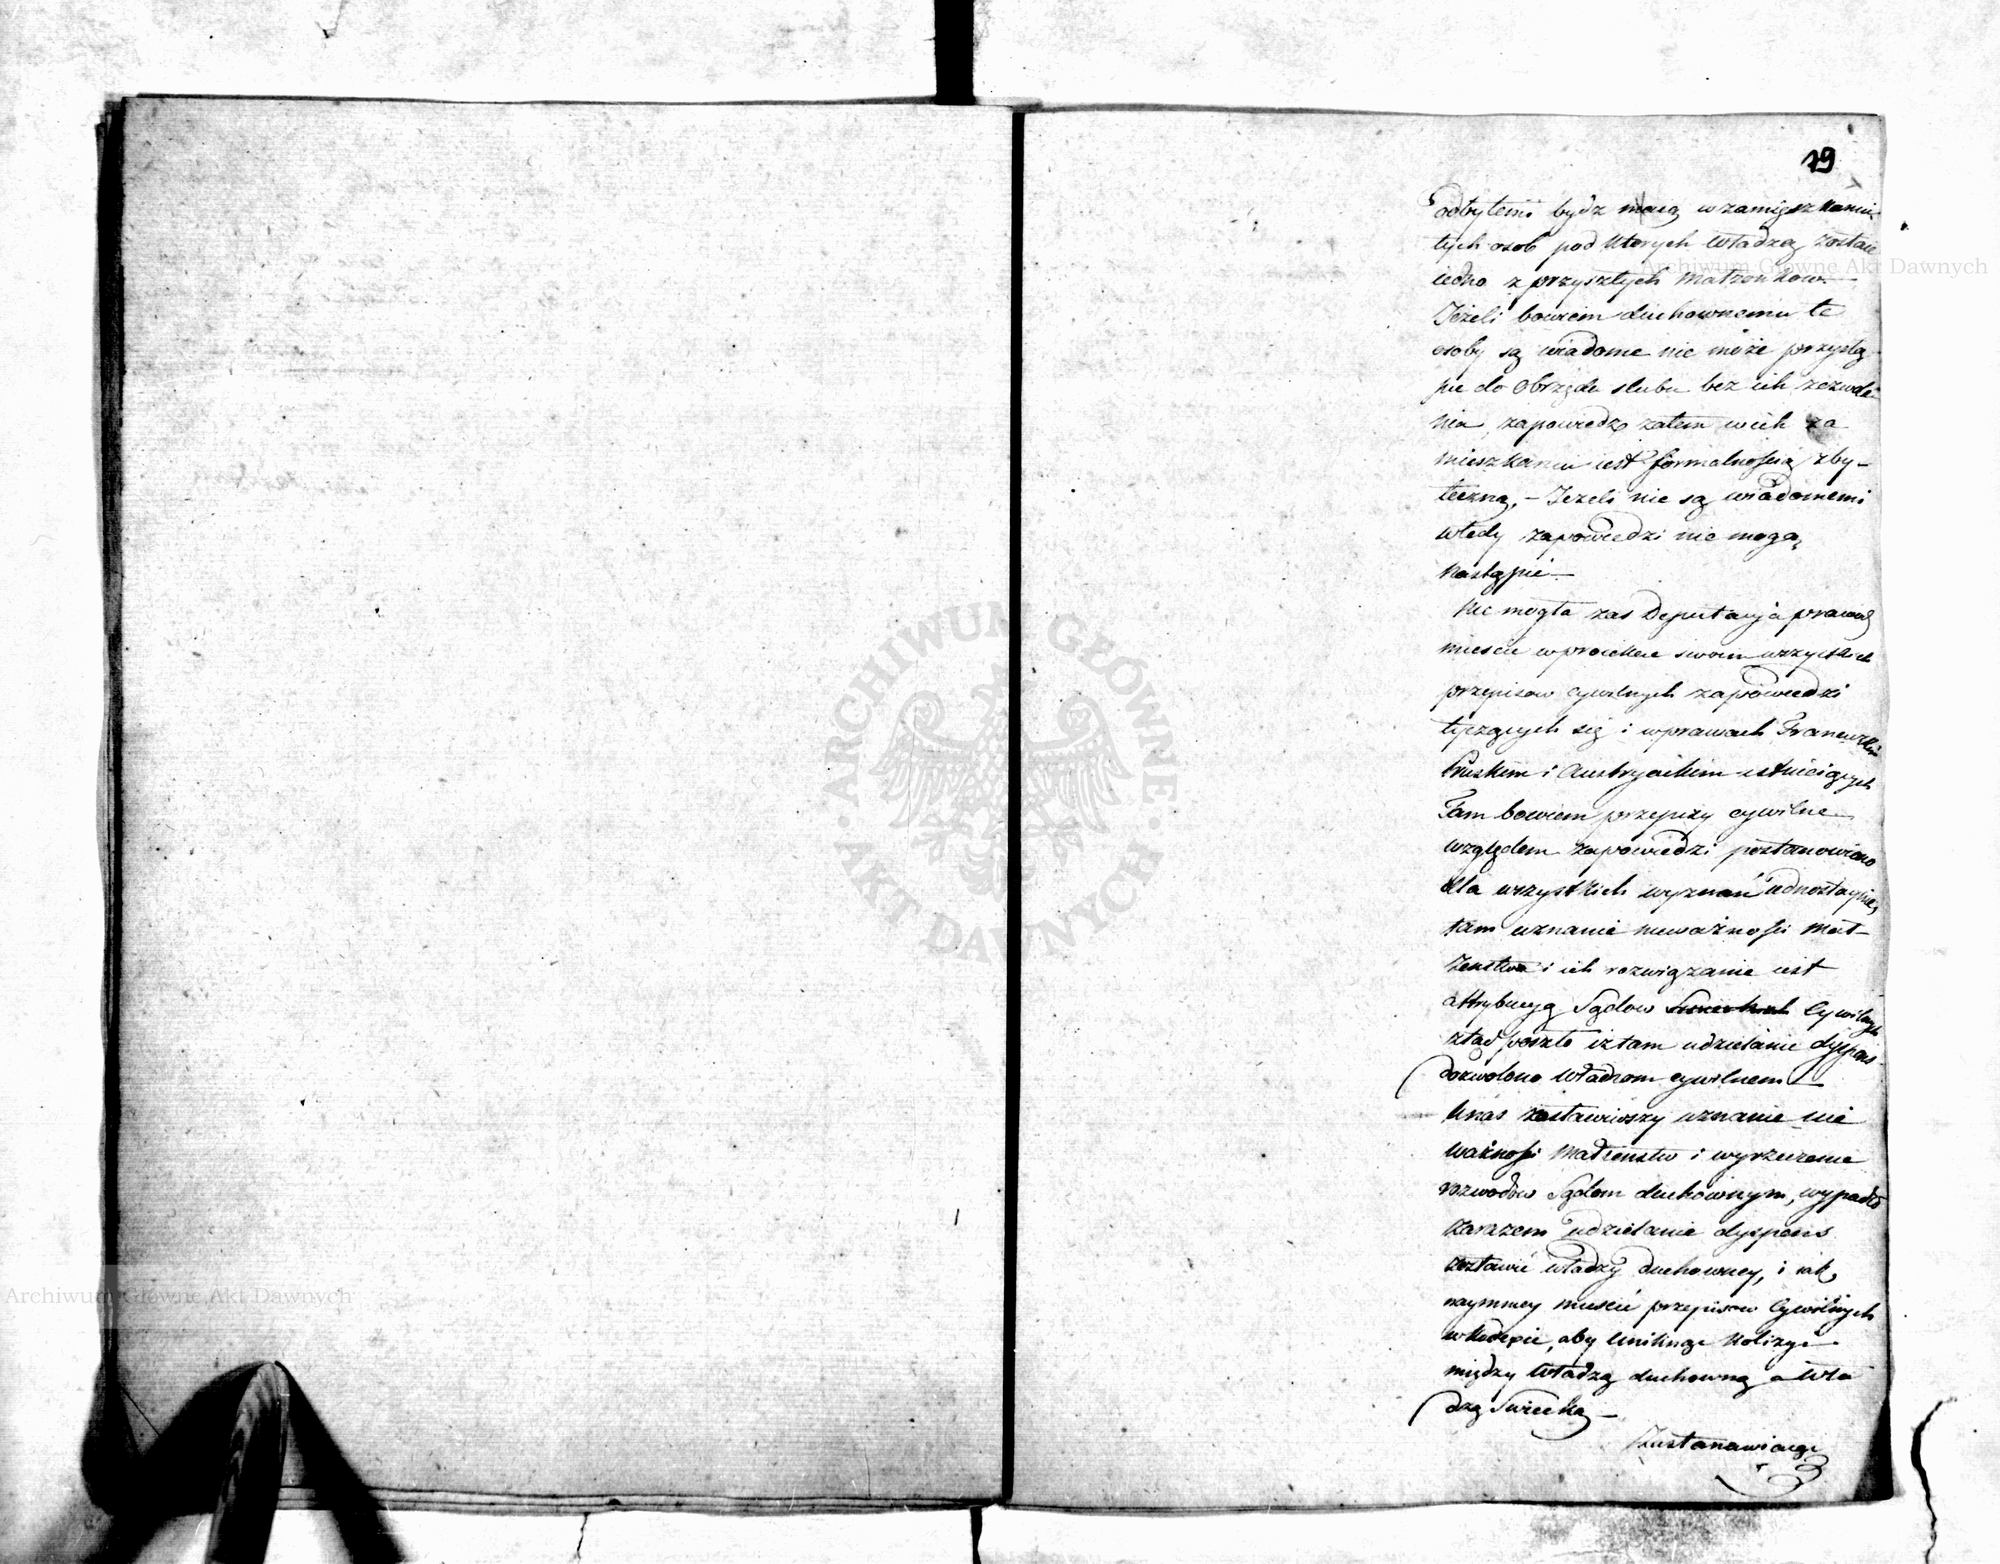 19
odbytemi bydz maią w zamięszkaniu
tych osob pod ktorych władzą zostaie
iedno z przyszłych Małżonkow.—
Jeżeli bowiem duchownemu te
osoby są wiadome nie może przystą-
pić do obrzędu slubu bez ich zezwole-
nia, zapowiedz zatem w ich za
mieszkaniu iest formalnością zby-
teczną.— Jeżeli nie są wiadomemi
wtedy zapowiedzi nie mogą
nastąpić—
Nie mogła zas Deputacja prawod.
mieścić w proiekcie swoim wszystkich
przepisow cywilnych zapowiedzi
tyczących się i w prawach Francuzkim
Pruskim i Austryackim istnieiących
Tam bowiem przepisy cywilne
względem zapowiedzi postanowiono
dla wszystkich wyznań iednostaynie,
tam uznanie nieważności Mał-
żenstwa i ich rozwiązanie iest
attrybucyą Sądow Cywilnych
ztąd poszło iż tam udzielanie dyspens
dozwolono władzom cywilnem—
U nas zostawiwszy uznanie nie
ważności Małżenstw i wyrzeczenie
rozwodow Sądom duchownym, wypadło
zarazem udzielanie dyspens
zostawić władzy duchowney, i iak
naymniey mieścić przepisow Cywilnych
w kodexie, aby uniknąć kolizyi
między władzą duchowną a wła
dzą Swiecką—
Zastanawiaiąc
Archiwum Główne Akt Dawnych
ARCHIWUM GŁÓWNE · AKT DAWNYCH ·
Archiwum Główne Akt Dawnych